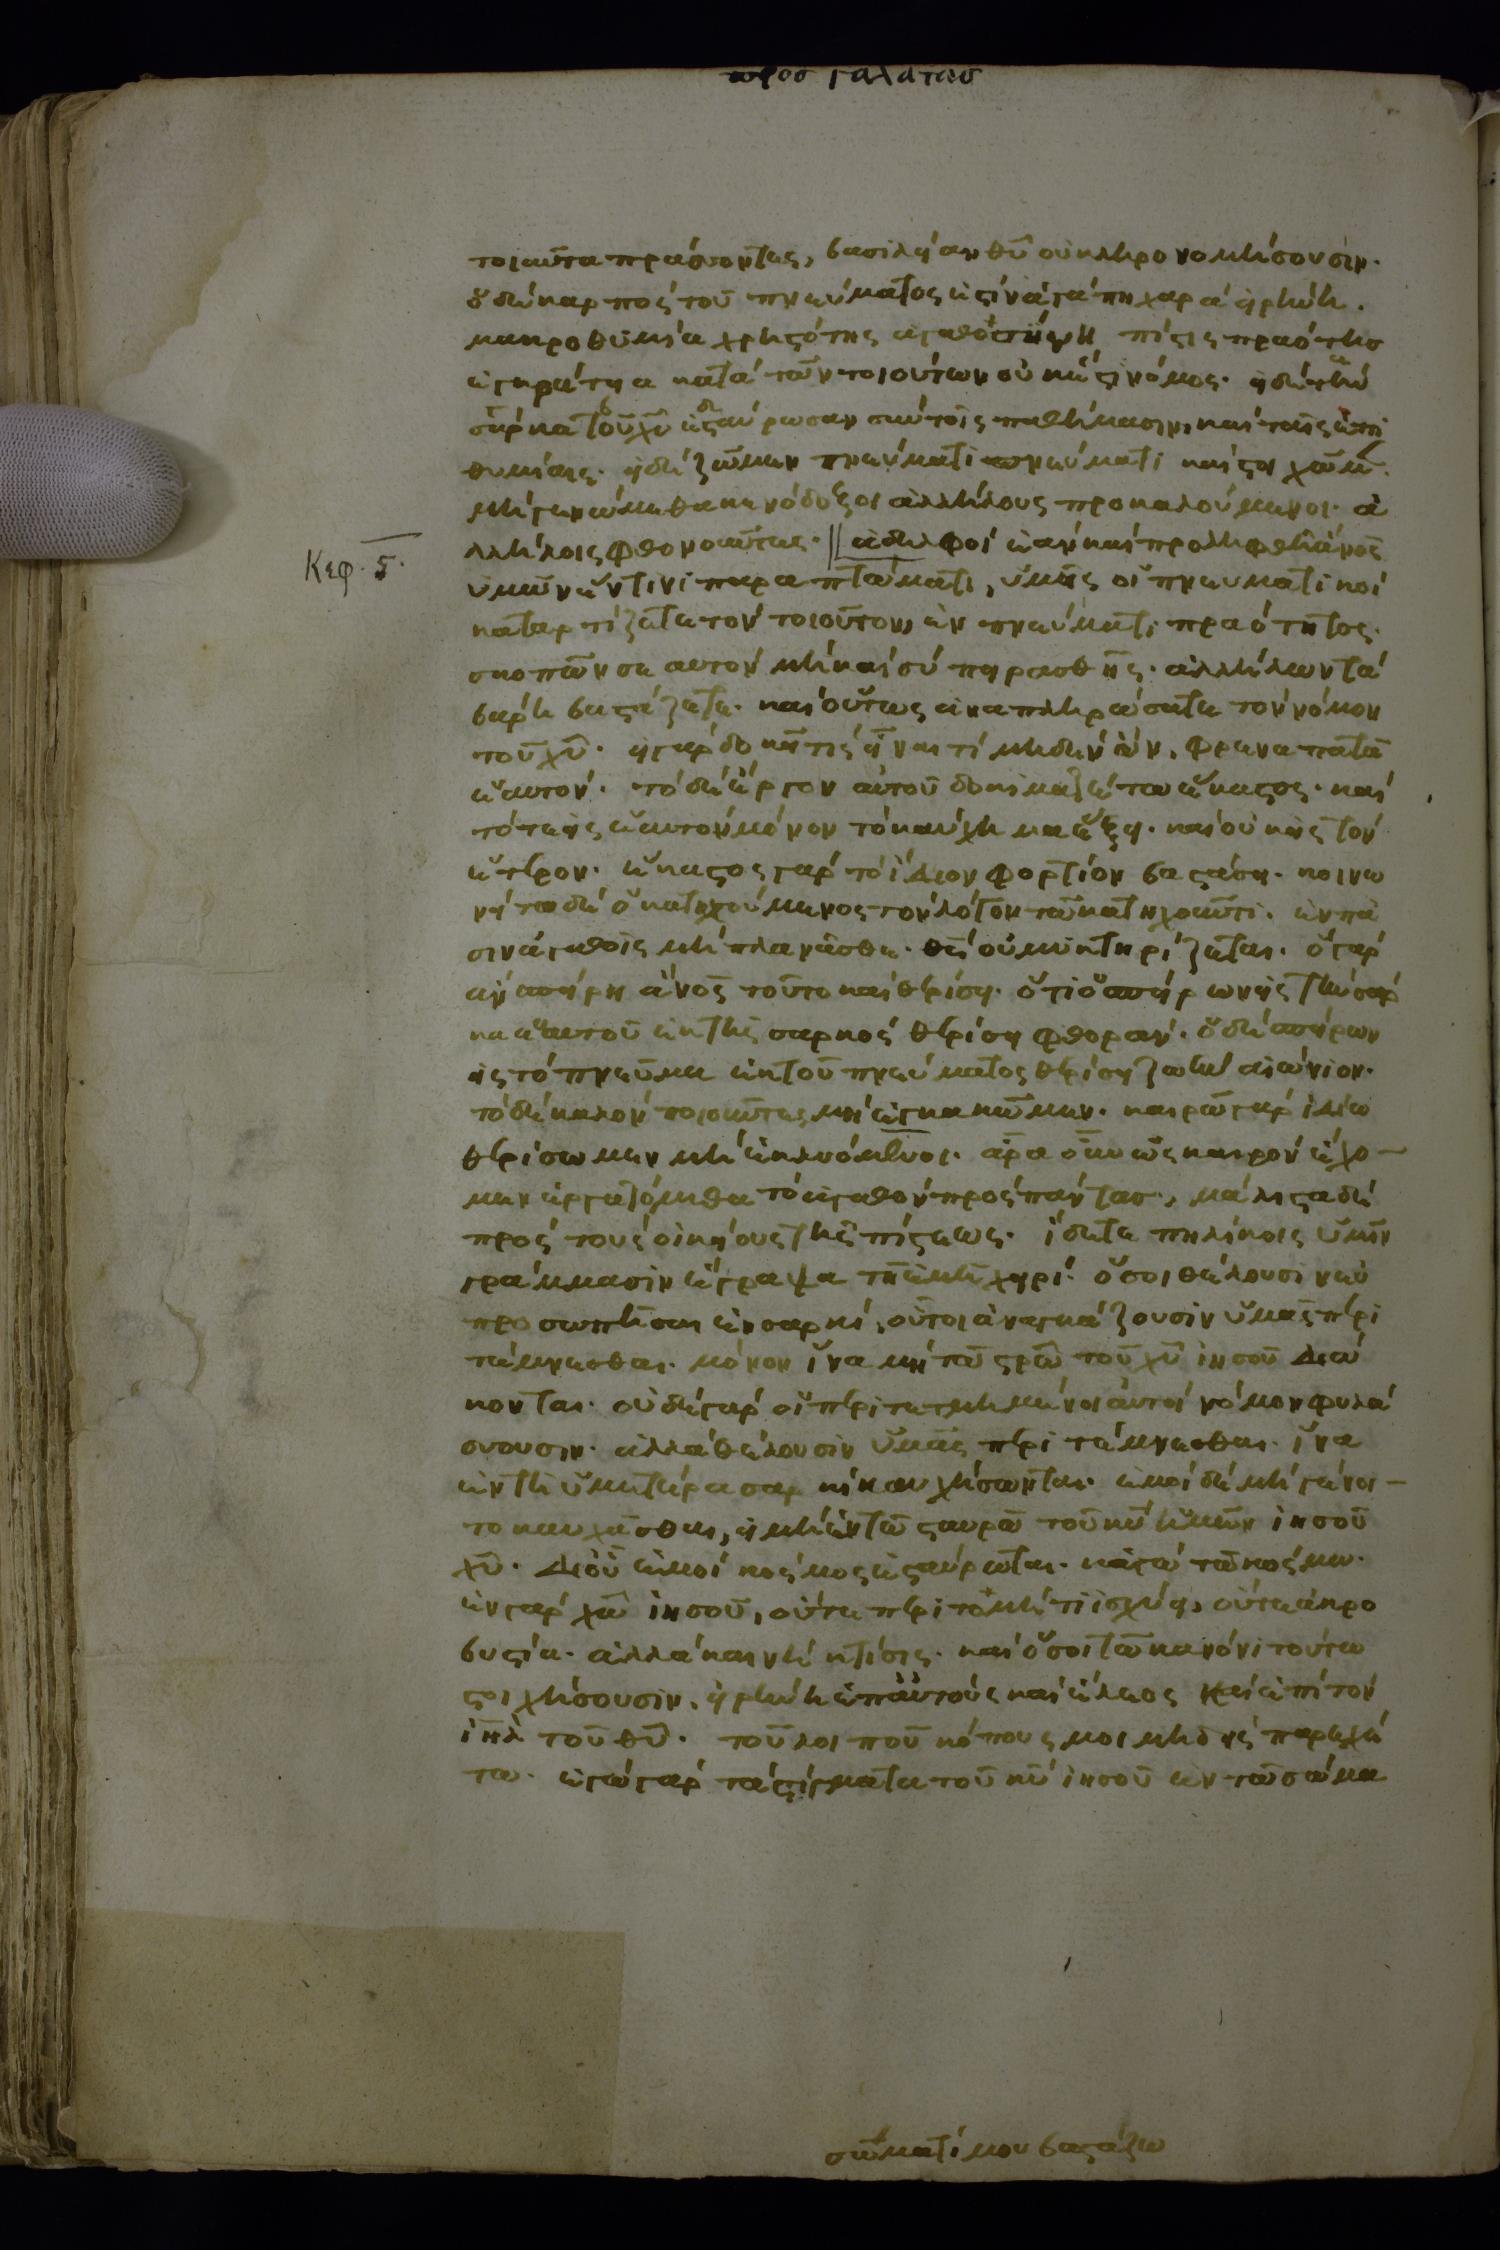 προς γαλατας
τοιαῦτα πράσσοντες, βασιλείαν θῡ οὐ κληρονομήσουσιν.
ὁ δὲ καρπὸς τοῦ πνεύματος ἐστὶν ἀγάπη χαρὰ εἰρήνη.
μακροθυμία χρηστότης πίστις πραότης
ἐγκράτεια κατὰ τῶν τοιούτων οὐκ ἔστι νόμος. οἱ δὲ τὴν
σάρκα τοῦ χῡ ἐσταύρωσαν σὺν τοῖς παθήμασιν, καὶ ταῖς ἐπι
θυμίαις. εἰ δὲ ζῶμεν πνεύματι πνεύματι καὶ στοιχῶμεν.
μὴ γενώμεθα κενόδοξοι ἀλλήλους προκαλούμενοι. ἀ
λλήλοις φθονοῦντες. || ἀδελφοί ἐὰν καὶ προληφθῆ ἄνος
Κεφ. ς.
ὑμῶν ἔν τινι παραπτώματι, ὑμεῖς οἱ πνευματικοὶ
καταρτίζετε τὸν τοιοῦτον, ἐν πνεύματι πραότητος.
σκοπῶν σεαυτὸν μὴ καὶ σὺ πειρασθῆς. ἀλλήλων τὰ
βάρη βαστάζετε. καὶ οὕτως ἀναπληρώσατε τὸν νόμον
τοῦ χῡ. εἰ γὰρ δοκεῖ τὶς εἶναι τί μηδὲν ὤν, φρεναπατᾶ
ἑαυτόν. τὸ δὲ ἔργον αὐτοῦ δοκιμαζέτω ἕκαστος. καὶ
τότε εἰς ἑαυτὸν μόνον τὸ καύχημα ἕξει. καὶ οὐκ εἰς τὸν
ἕτερον. ἕκαστος γὰρ τὸ ἴδιον φορτίον βαστάσει. κοινω
νείτω δὲ ὁ κατηχούμενος τὸν λόγον τῶ κατηχοῦντι. ἐν πᾶ
σιν ἀγαθοῖς μὴ πλανᾶσθε. θς̄ οὐ μυκτηρίζεται. ὃ γὰρ
ἐὰν σπείρη ἄνος τοῦτο καὶ θερίσει. ὅτι ὁ σπείρων εἰς τὴν σάρ
κα ἑαυτοῦ ἐκ τῆς σαρκὸς θερίσει φθοράν. ὁ δὲ σπείρων
εἰς τὸ πνεῦμα ἐκ τοῦ πνεύματος θερίσει ζωὴν αἰώνιον.
τὸ δὲ καλὸν ποιοῦντες μὴ ἐγκακῶμεν. καιρῶ γὰρ ἰδίω
θερίσωμεν μὴ ἐκλυόμενοι. ἄρα οὖν ὡς καιρὸν ἔχο-
μεν ἐργαζόμεθα τὸ ἀγαθὸν πρὸς πάντας, μάλιστα δὲ
πρὸς τοὺς οἰκείους τῆς πίστεως. ἴδετε πηλίκοις ὑμῖν
γράμμασιν ἔγραψα τῆ ἐμῆ χειρί. ὅσοι θέλουσιν εὐ
προσωπῆσαι ἐν σαρκί, οὗτοι ἀναγκάζουσιν ὑμᾶς περι
τέμνεσθαι. μόνον ἵνα μὴ τῶ στρῶ τοῦ χῡ ἰησοῦ διώ
κονται. οὐδὲ γὰρ οἱ περιτετμημένοι αὐτοὶ νόμον φυλά
σσουσιν. ἀλλὰ θέλουσιν ὑμᾶς περιτέμνεσθαι. ἵνα
ἐν τῆ ὑμετέρα σαρκὶ καυχήσωνται. ἐμοὶ δὲ μὴ γένοι-
το καυχᾶσθαι, εἰ μὴ ἐν τῶ σταυρῶ τοῦ κῡ ἡμῶν ἰησοῦ
χῡ. δι' οὗ ἐμοὶ κόσμος ἐσταύρωται. κἀγὼ τῶ κόσμω.
ἐν γὰρ χῶ ἰησοῦ, οὔτε περιτομή τι ἰσχύει, οὔτε ἀκρο
βυστία. ἀλλὰ καινὴ κτίσις. καὶ ὅσοι τῶ κανόνι τούτω
στοιχήσουσιν, εἰρήνη ἐπ' αὐτοὺς καὶ ἔλεος καὶ ἐπὶ τὸν
ἰηλ τοῦ θῡ. τοῦ λοιποῦ κόπους μοι μηδεὶς παρεχέ
τω. ἐγὼ γὰρ τὰ στίγματα τοῦ κῡ ἰησοῦ ἐν τῶ σώμα
σώματί μου βαστάζω